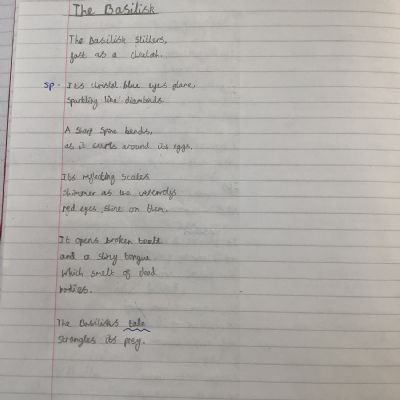 The Basilisk
The Basilisk slithers,
fast as a cheetah.
Sp - It's cristal blue eyes glare,
sparkling like diamonds.
A sharp spine bends,
as it curls around its eggs.
Its reflecting scales
shimmer as the
red eyes shine on them.
It opens broken teeth
and a slimy tongue
which smelt of dead
bodies.
The Basilisks tale
strangles its prey.